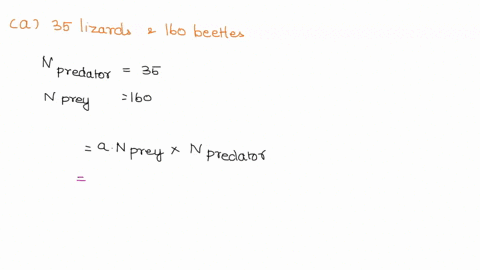 (a) 35 lizards & 160 beetles
N predator = 35
N prey = 160
= a. N prey × N predator
=